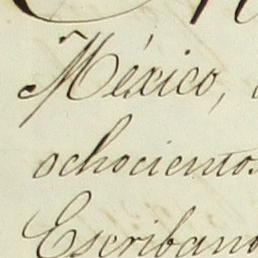 México,
ochocientos
Escribano